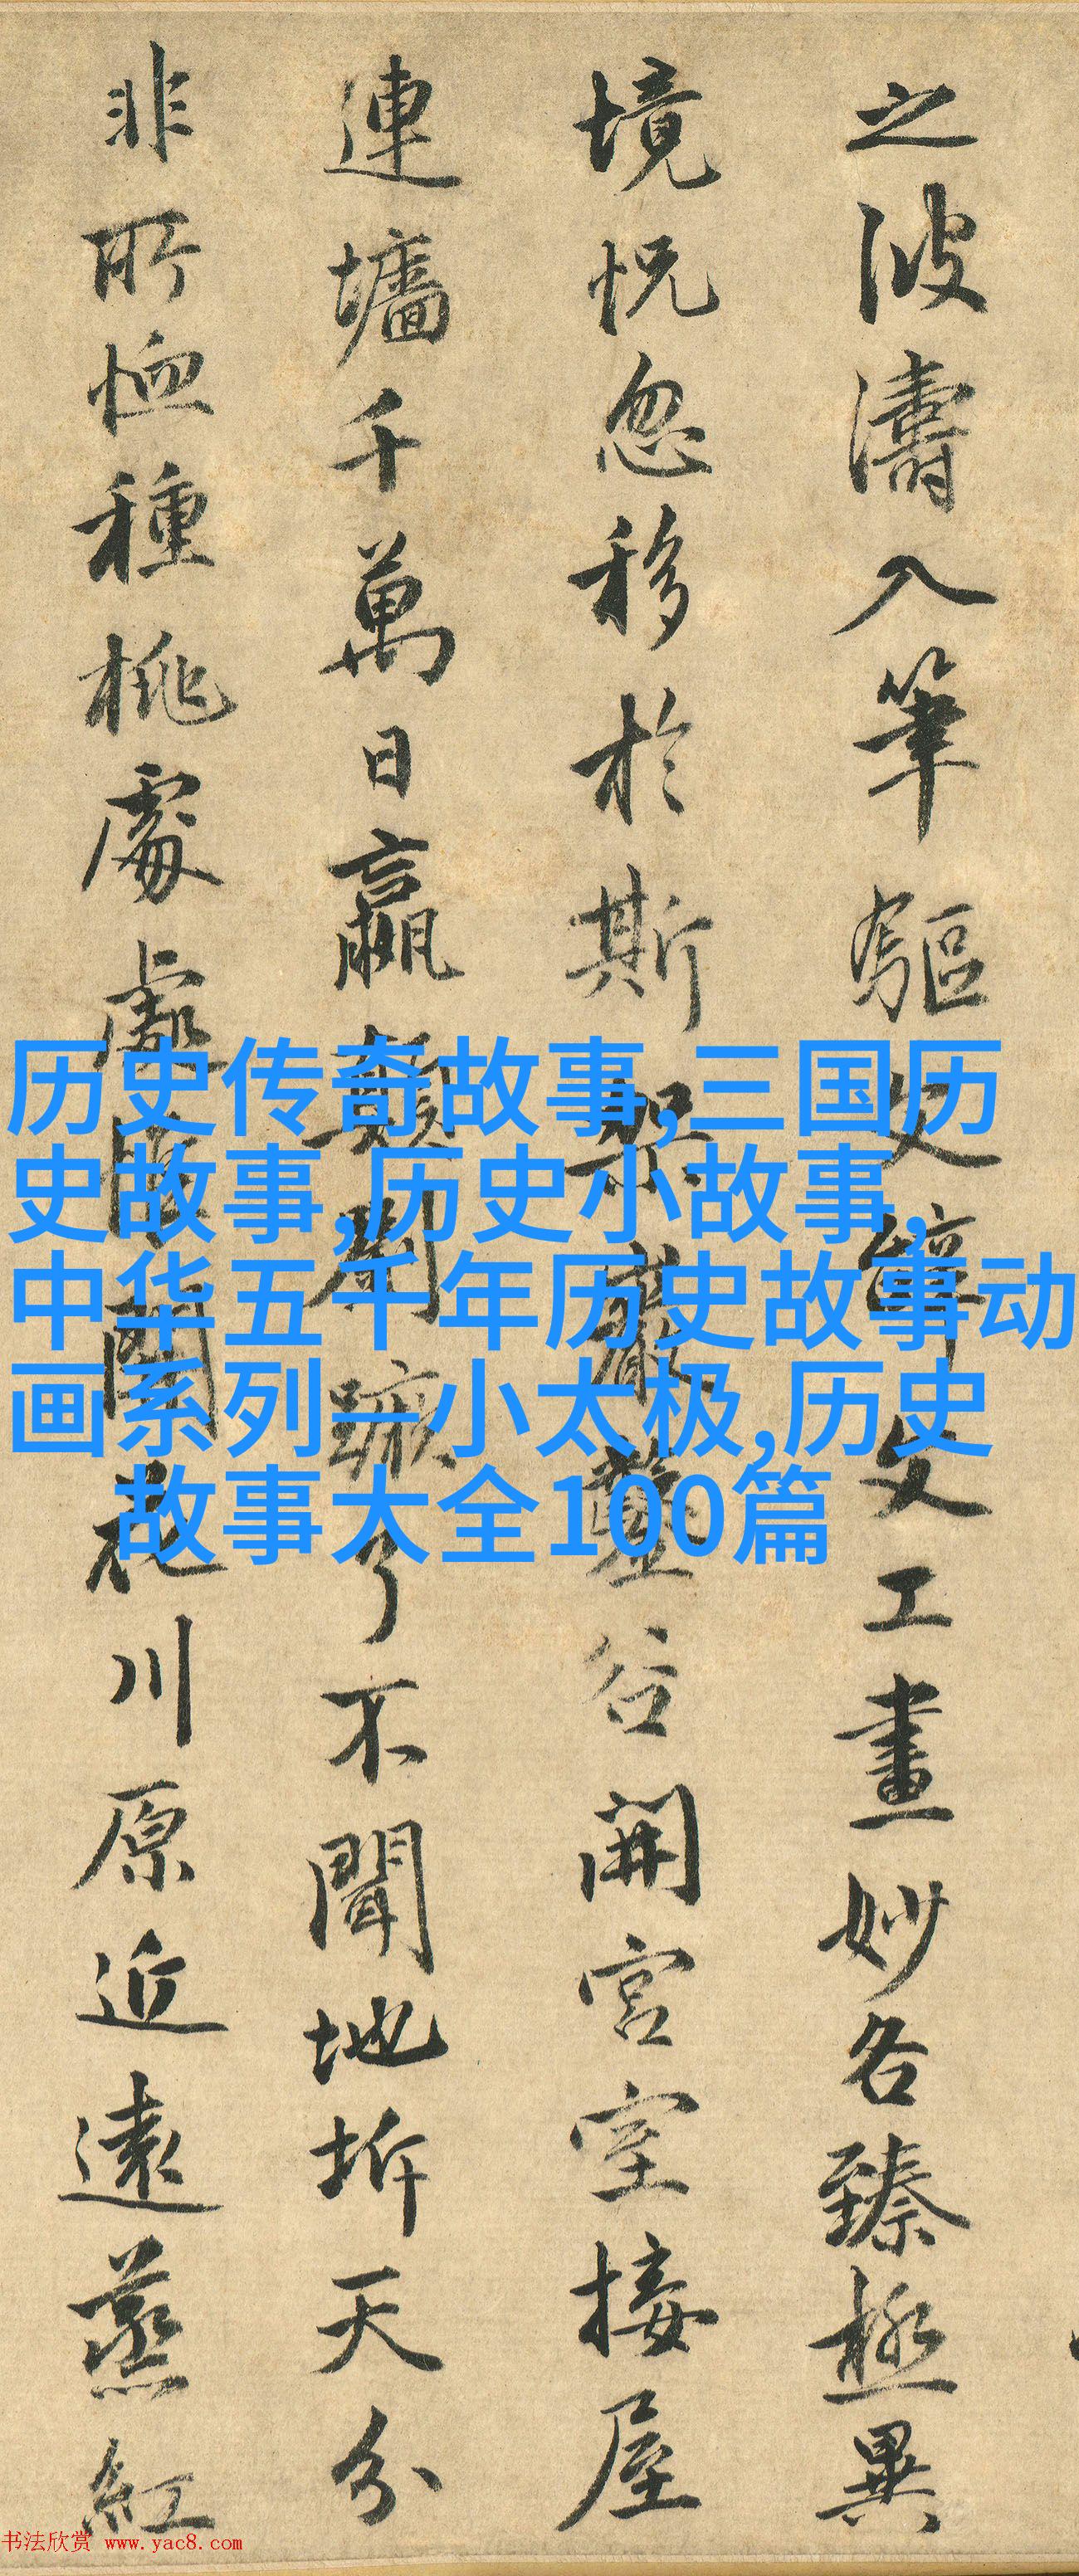 之波濤入筆驅文辭文工畫妙各臻極異
境怳忽移於斯架巖鑿谷開宮室接屋
連墻千萬日嬴顛劉蹶了不聞地坼天分
非所恤種桃處處惟開花川原近遠蒸紅
历史传奇故事,三国历
史故事,历史小故事,
中华五千年历史故事动
画系列—小太极,历史
故事大全100篇
书法欣赏 www.yac8.com